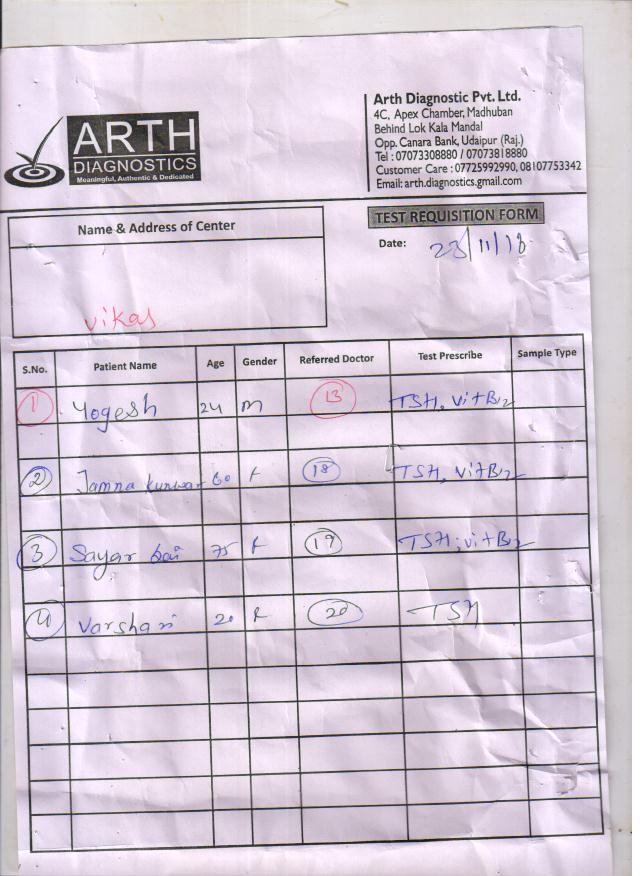 ARTH
DIAGNOSTICS
Meaningful, Authentic & Dedicated
Arth Diagnostic Pvt. Ltd.
4C, Apex Chamber, Madhuban
Behind Lok Kala Mandal
Opp. Canara Bank, Udaipur (Raj.)
Tel : 07073308880 / 07073818880
Customer Care : 07725992990, 08107753342
Email: arth.diagnostics.gmail.com
Name & Address of Center
vikas
TEST REQUISITION FORM
Date: 23/11/18
S.No. Patient Name Age Gender Referred Doctor Test Prescribe Sample Type
1 Yogesh 24 m 13 TSH, Vit B12
2 Jamna kunwar 60 f 18 TSH, Vit B12
3 Sayar bai 75 f 19 TSH, vit B12
4 Varsha 20 F 20 TSH